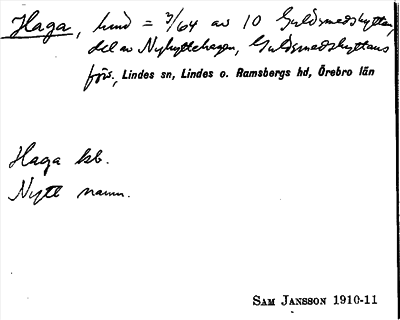 Haga, lund = 3/64 av 10 Guldsmedshyttan,
del av Nyhyttehagen, Guldsmedshyttans
förs., Lindes sn, Lindes o. Ramsbergs hd, Örebro län
Haga kb.
Nytt namn.
SAM JANSSON 1910-11